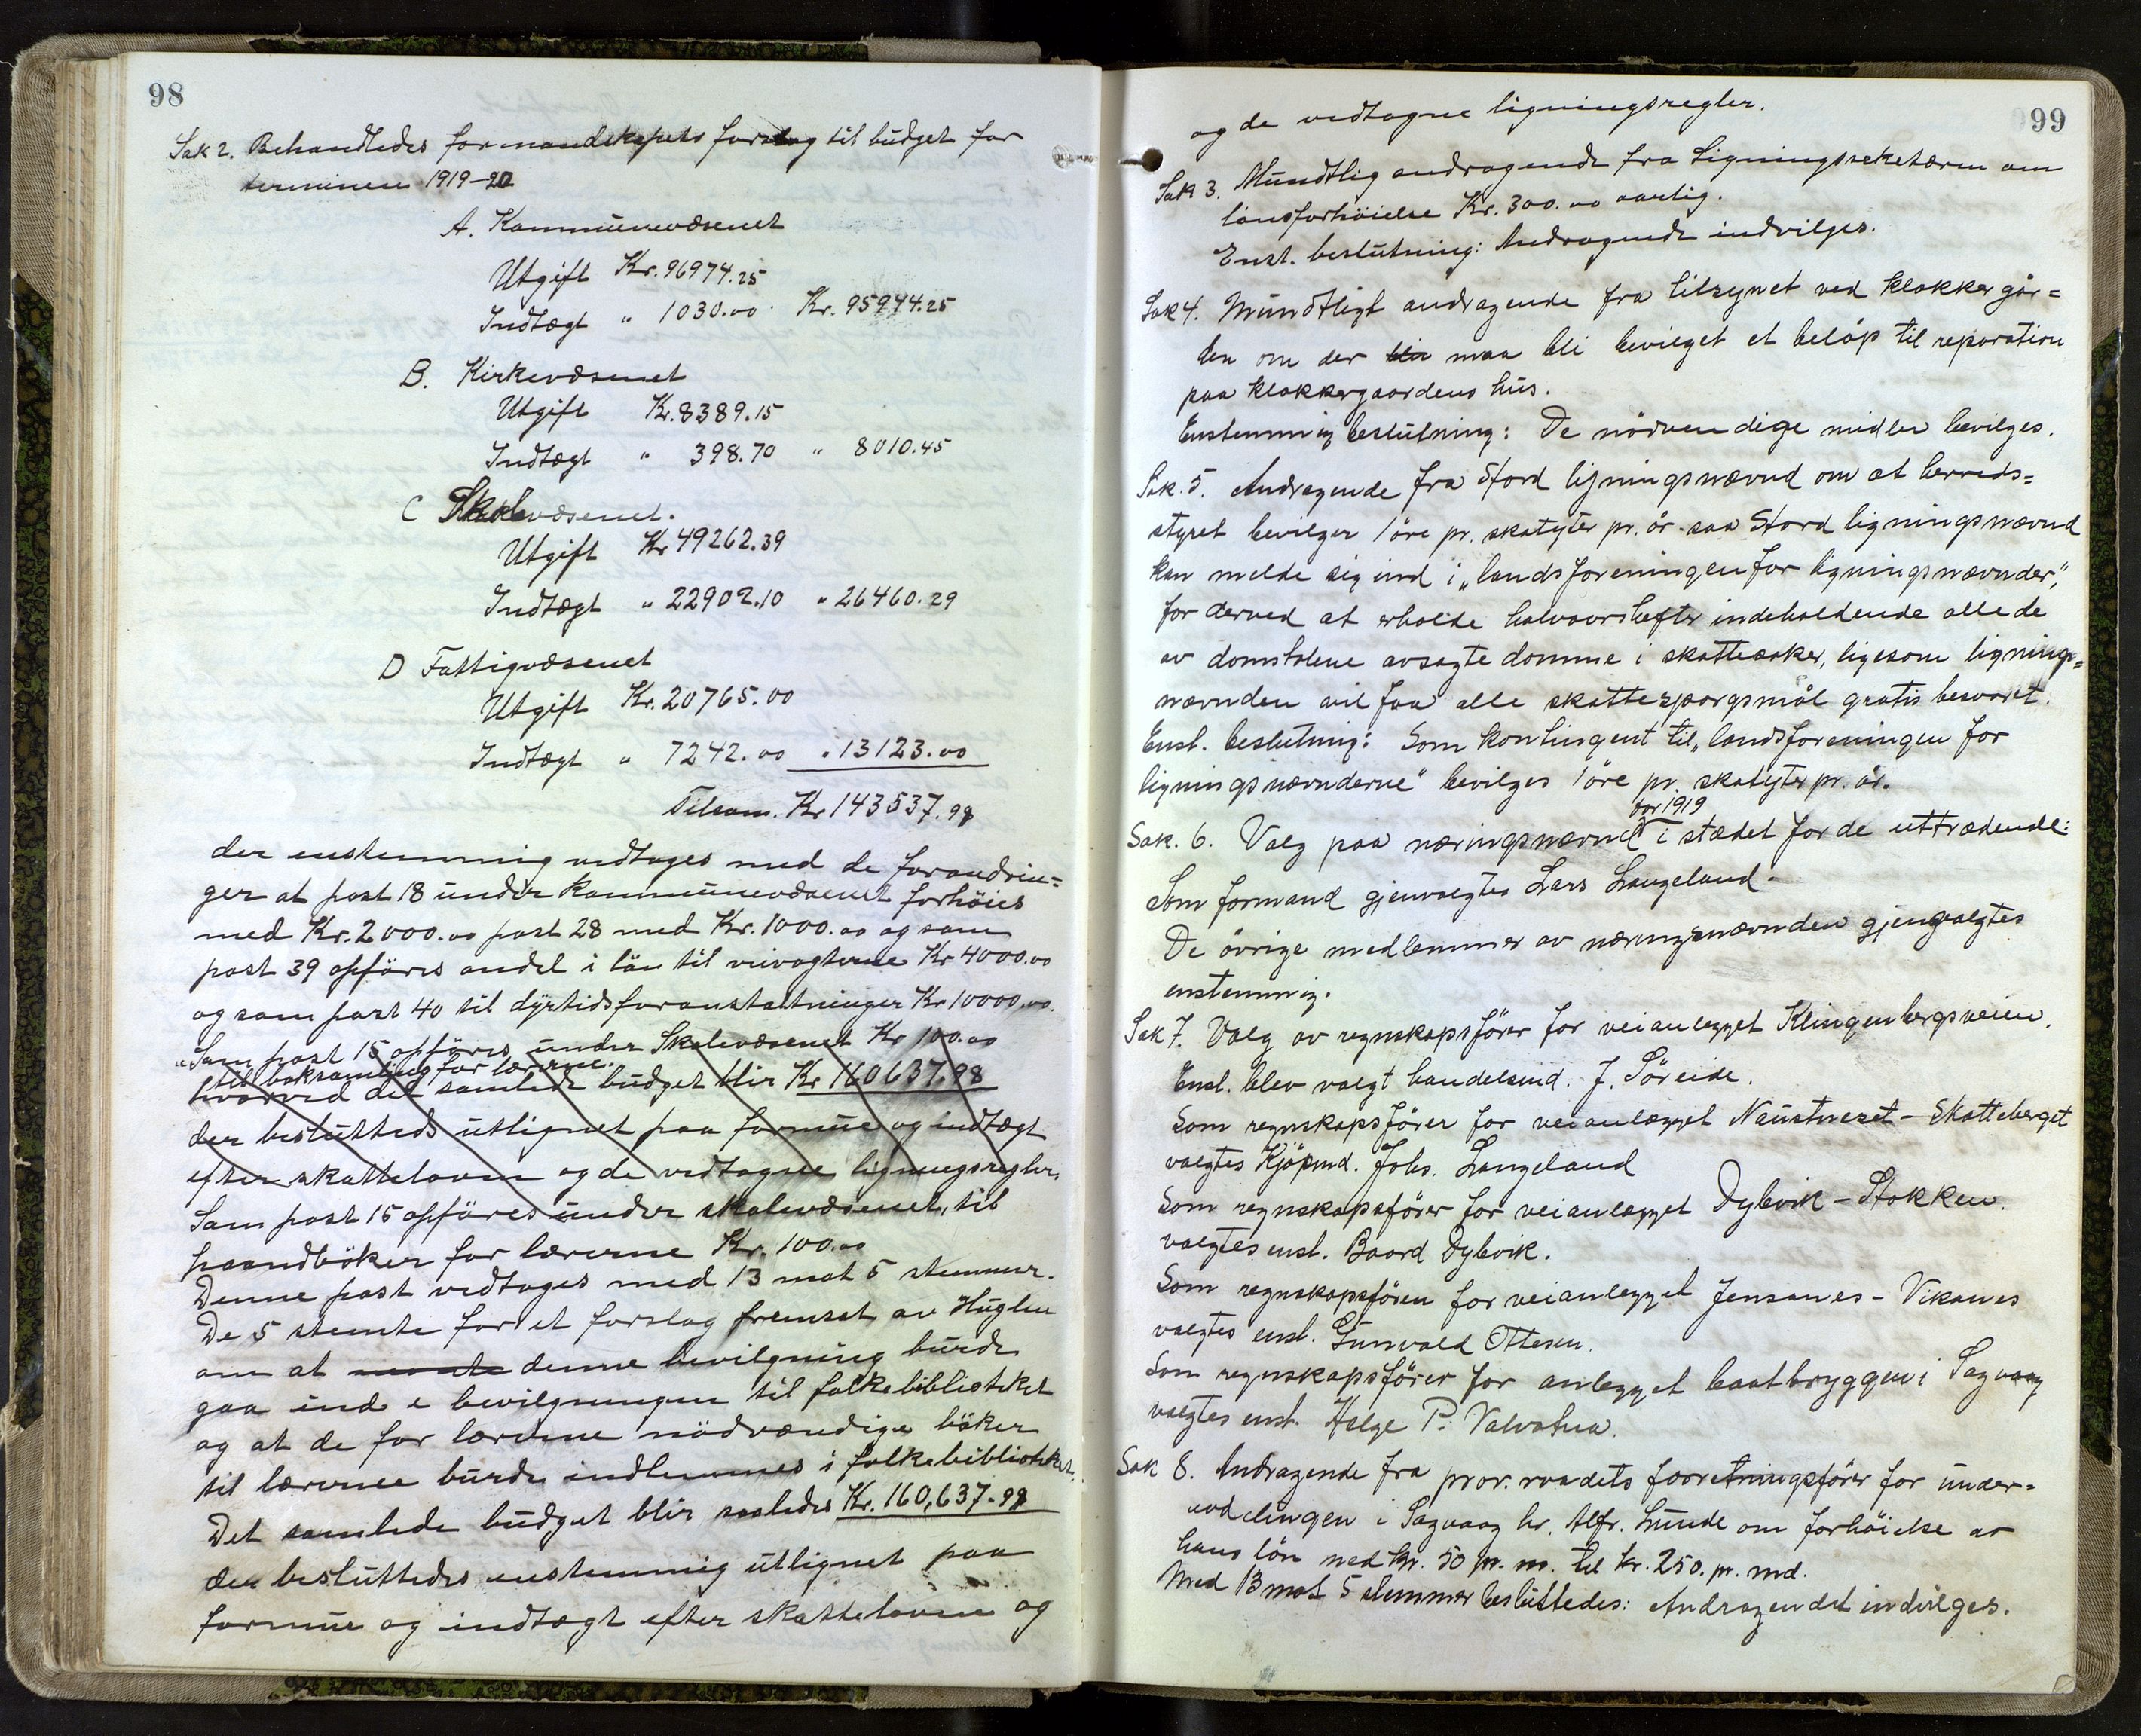 98
Sak 2. Behandledes formandskapets forslag til budget for
terminen 1919-20
A. Kommunevæsenet
Utgift Kr. 96974.25
Indtægt " 1030.00 Kr. 95944.25
B. Kirkevæsenet
Utgift Kr. 8389.15
Indtægt " 398.70 " 8010.45
C Skolevæsenet.
Utgift Kr 49262.39
Indtægt " 22902.10 " 26460.29
D Fattigvæsenet
Utgift Kr. 20765.00
Indtægt " 7242.00 " 13123.00
Tilsam. Kr 143537.98
der enstemmig vedtoges med de forandrin=
ger at post 18 under kommunevæsenet forhöies
med Kr. 2000.00 post 28 med Kr. 1000.00 og som
post 39 opföres andel i lön til veivogterne Kr 4000.00
og som post 40 til dyrtidsforanstaltninger Kr 10000.00.
"Som post 15 opföres under Skolevæsenet Kr 100.00
til boksamling for lærerne.
hvorved det samlede budget blir Kr 160637.98
der besluttedes utlignet paa formue og indtægt
efter skatteloven og de vedtagne ligningsregler.
Som post 15 opföres under skolevæsenet, til
haandböker for lærerne Kr. 100.00
Denne post vedtoges med 13 mot 5 stemmer.
De 5 stemte for et forslag fremsat av Huglen
om at denne bevilgning burde
gaa ind i bevilgningen til folkebiblioteket
og at de for lærerne nödvændige böker
til lærerne burde indlemmes i folkebiblioteket.
Det samlede budget blir saaledes Kr. 160,637.98
der besluttedes enstemmig utlignet paa
formue og indtægt efter skatteloven og
99
og de vedtagne ligningsregler.
Sak 3. Mundtlig andragende fra Ligningssekretæren om
lönsforhöielse Kr. 300.00 aarlig.
Enst. beslutning: Andragende indvilges.
Sak 4. Mundtligt andragende fra tilsynet ved klokkergår=
den om der blir maa bli bevilget et belöp til reparation
paa klokkergaardens hus.
Enstemmig beslutning: De nödvendige midler bevilges.
Sak. 5. Andragende fra Stord ligningsnævnd om at herreds=
styret bevilger 1 öre pr. skatyter pr. år saa Stord ligningsnævnd
kan melde sig ind i "landsforeningen for ligningsnævnder",
for derved at erholde halvaarshefter indeholdende alle de
av domstolene avsagte domme i skattesaker, ligesom lignings=
nævnden vil faa alle skattespørgsmål gratis besvaret.
Enst. beslutning: Som kontingent til "landsforeningen for
ligningsnævnderne" bevilges 1 öre pr. skatyter pr. år.
for 1919
Sak. 6. Valg paa næringsnævnd i stædet for de uttrædende:
Som formand gjenvalgtes Lars Langeland.
De övrige medlemmer av næringsnævnden gjenvalgtes
enstemmig.
Sak 7. Valg av regnskapsförer for veianlegget Klingenbergsveien.
Enst. blev valgt handelsmd. J. Söreide.
Som regnskapsförer for veianlægget Naustneset - Skatteberget
valgtes Kjöpmd. Johs. Langeland
Som regnskapsförer for veianlegget Dybvik - Stokken.
valgtes enst. Baard Dybvik.
Som regnskapsförer for veianlegget Jensanes - Vikanes
valgtes enst. Gunvald Ottesen.
Som regnskapsförer for anlegget baatbryggen i Sagvaag
valgtes enst. Helge P. Valvatna.
Sak 8. Andragende fra prov. raadets forretningsförer for under=
avdelingen i Sagvaag hr. Alfr. Lunde om forhöielse av
hans lön med kr. 50 pr. m. til kr. 250. pr. md.
Med 13 mot 5 stemmer besluttedes: Andragendet indvilges.